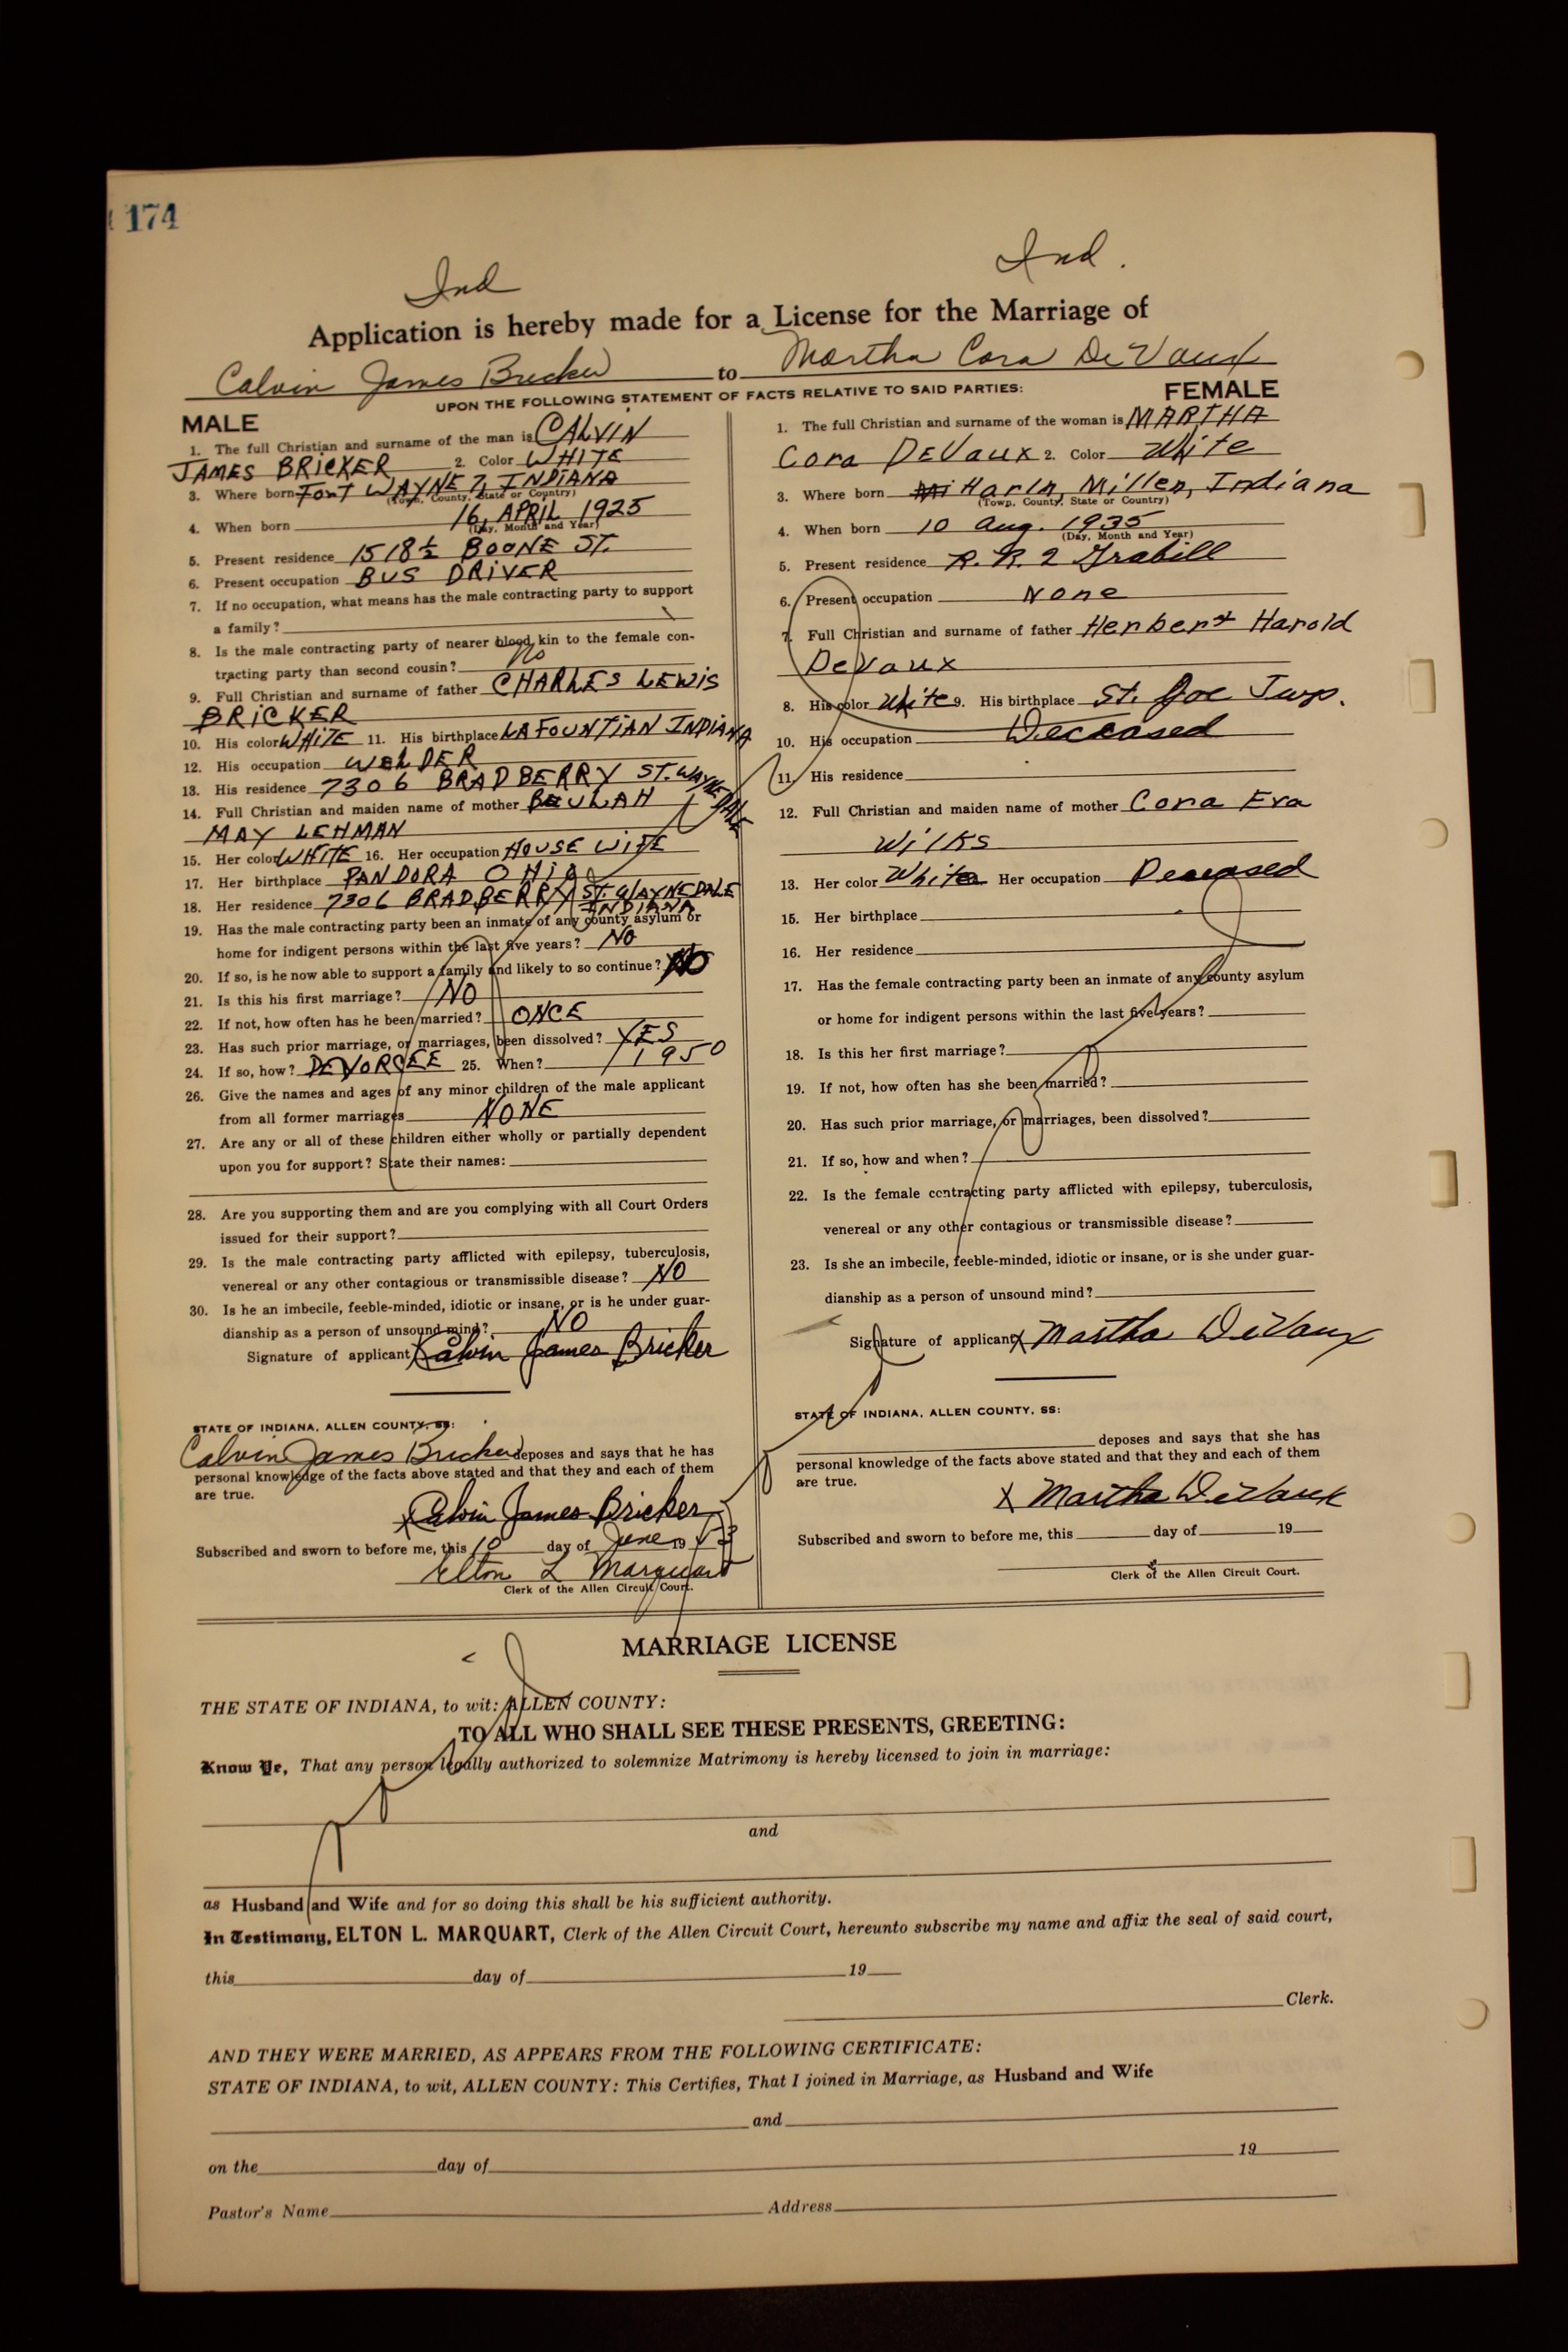 174
Ind
Ind.
Application is hereby made for a License for the Marriage of
Calvin James Bricker to Martha Cora DeVaux
UPON THE FOLLOWING STATEMENT OF FACTS RELATIVE TO SAID PARTIES:
MALE
1. The full Christian and surname of the man is CALVIN
JAMES BRICKER 2. Color WHITE
3. Where born FORT WAYNE 7, INDIANA
(Town, County, State or Country)
4. When born 16, APRIL 1925
(Day, Month and Year)
5. Present residence 1518½ BOONE ST.
6. Present occupation BUS DRIVER
7. If no occupation, what means has the male contracting party to support
a family?
8. Is the male contracting party of nearer blood kin to the female con-
tracting party than second cousin? no
9. Full Christian and surname of father CHARLES LEWIS
BRICKER
10. His color WHITE 11. His birthplace LAFOUNTIAN INDIANA
12. His occupation WELDER
13. His residence 7306 BRADBERRY ST. WAYNEDALE
14. Full Christian and maiden name of mother BEULAH
MAY LEHMAN
15. Her color WHITE 16. Her occupation HOUSE WIFE
17. Her birthplace PANDORA OHIO
18. Her residence 7306 BRADBERRY ST. WAYNEDALE
INDIANA
19. Has the male contracting party been an inmate of any county asylum or
home for indigent persons within the last five years? NO
20. If so, is he now able to support a family and likely to so continue? NO
21. Is this his first marriage? NO
22. If not, how often has he been married? ONCE
23. Has such prior marriage, or marriages, been dissolved? YES
24. If so, how? DEVORCEE 25. When? 1950
26. Give the names and ages of any minor children of the male applicant
from all former marriages NONE
27. Are any or all of these children either wholly or partially dependent
upon you for support? State their names:
28. Are you supporting them and are you complying with all Court Orders
issued for their support?
29. Is the male contracting party afflicted with epilepsy, tuberculosis,
venereal or any other contagious or transmissible disease? NO
30. Is he an imbecile, feeble-minded, idiotic or insane, or is he under guar-
dianship as a person of unsound mind? NO
Signature of applicant X Calvin James Bricker
STATE OF INDIANA, ALLEN COUNTY, SS:
Calvin James Bricker deposes and says that he has
personal knowledge of the facts above stated and that they and each of them
are true.
X Calvin James Bricker
Subscribed and sworn to before me, this 10 day of June 19 53
Elton L Marquart
Clerk of the Allen Circuit Court.
FEMALE
1. The full Christian and surname of the woman is MARTHA
Cora DeVaux 2. Color White
3. Where born Harln, Miller, Indiana
(Town, County, State or Country)
4. When born 10 Aug. 1935
(Day, Month and Year)
5. Present residence R. R. 2 Grabill
6. Present occupation None
7. Full Christian and surname of father Herbert Harold
DeVaux
8. His color White 9. His birthplace St. Joe Twp.
10. His occupation Deceased
11. His residence
12. Full Christian and maiden name of mother Cora Eva
Wilks
13. Her color White Her occupation Deceased
15. Her birthplace
16. Her residence
17. Has the female contracting party been an inmate of any county asylum
or home for indigent persons within the last five years?
18. Is this her first marriage?
19. If not, how often has she been married?
20. Has such prior marriage, or marriages, been dissolved?
21. If so, how and when?
22. Is the female contracting party afflicted with epilepsy, tuberculosis,
venereal or any other contagious or transmissible disease?
23. Is she an imbecile, feeble-minded, idiotic or insane, or is she under guar-
dianship as a person of unsound mind?
Signature of applicant X Martha DeVaux
STATE OF INDIANA, ALLEN COUNTY, SS:
deposes and says that she has
personal knowledge of the facts above stated and that they and each of them
are true.
X Martha DeVaux
Subscribed and sworn to before me, this day of 19
Clerk of the Allen Circuit Court.
MARRIAGE LICENSE
THE STATE OF INDIANA, to wit: ALLEN COUNTY:
TO ALL WHO SHALL SEE THESE PRESENTS, GREETING:
Know Ye, That any person legally authorized to solemnize Matrimony is hereby licensed to join in marriage:
and
as Husband and Wife and for so doing this shall be his sufficient authority.
In Testimony, ELTON L. MARQUART, Clerk of the Allen Circuit Court, hereunto subscribe my name and affix the seal of said court,
this day of 19
Clerk.
AND THEY WERE MARRIED, AS APPEARS FROM THE FOLLOWING CERTIFICATE:
STATE OF INDIANA, to wit, ALLEN COUNTY: This Certifies, That I joined in Marriage, as Husband and Wife
and
on the day of 19
Pastor's Name Address